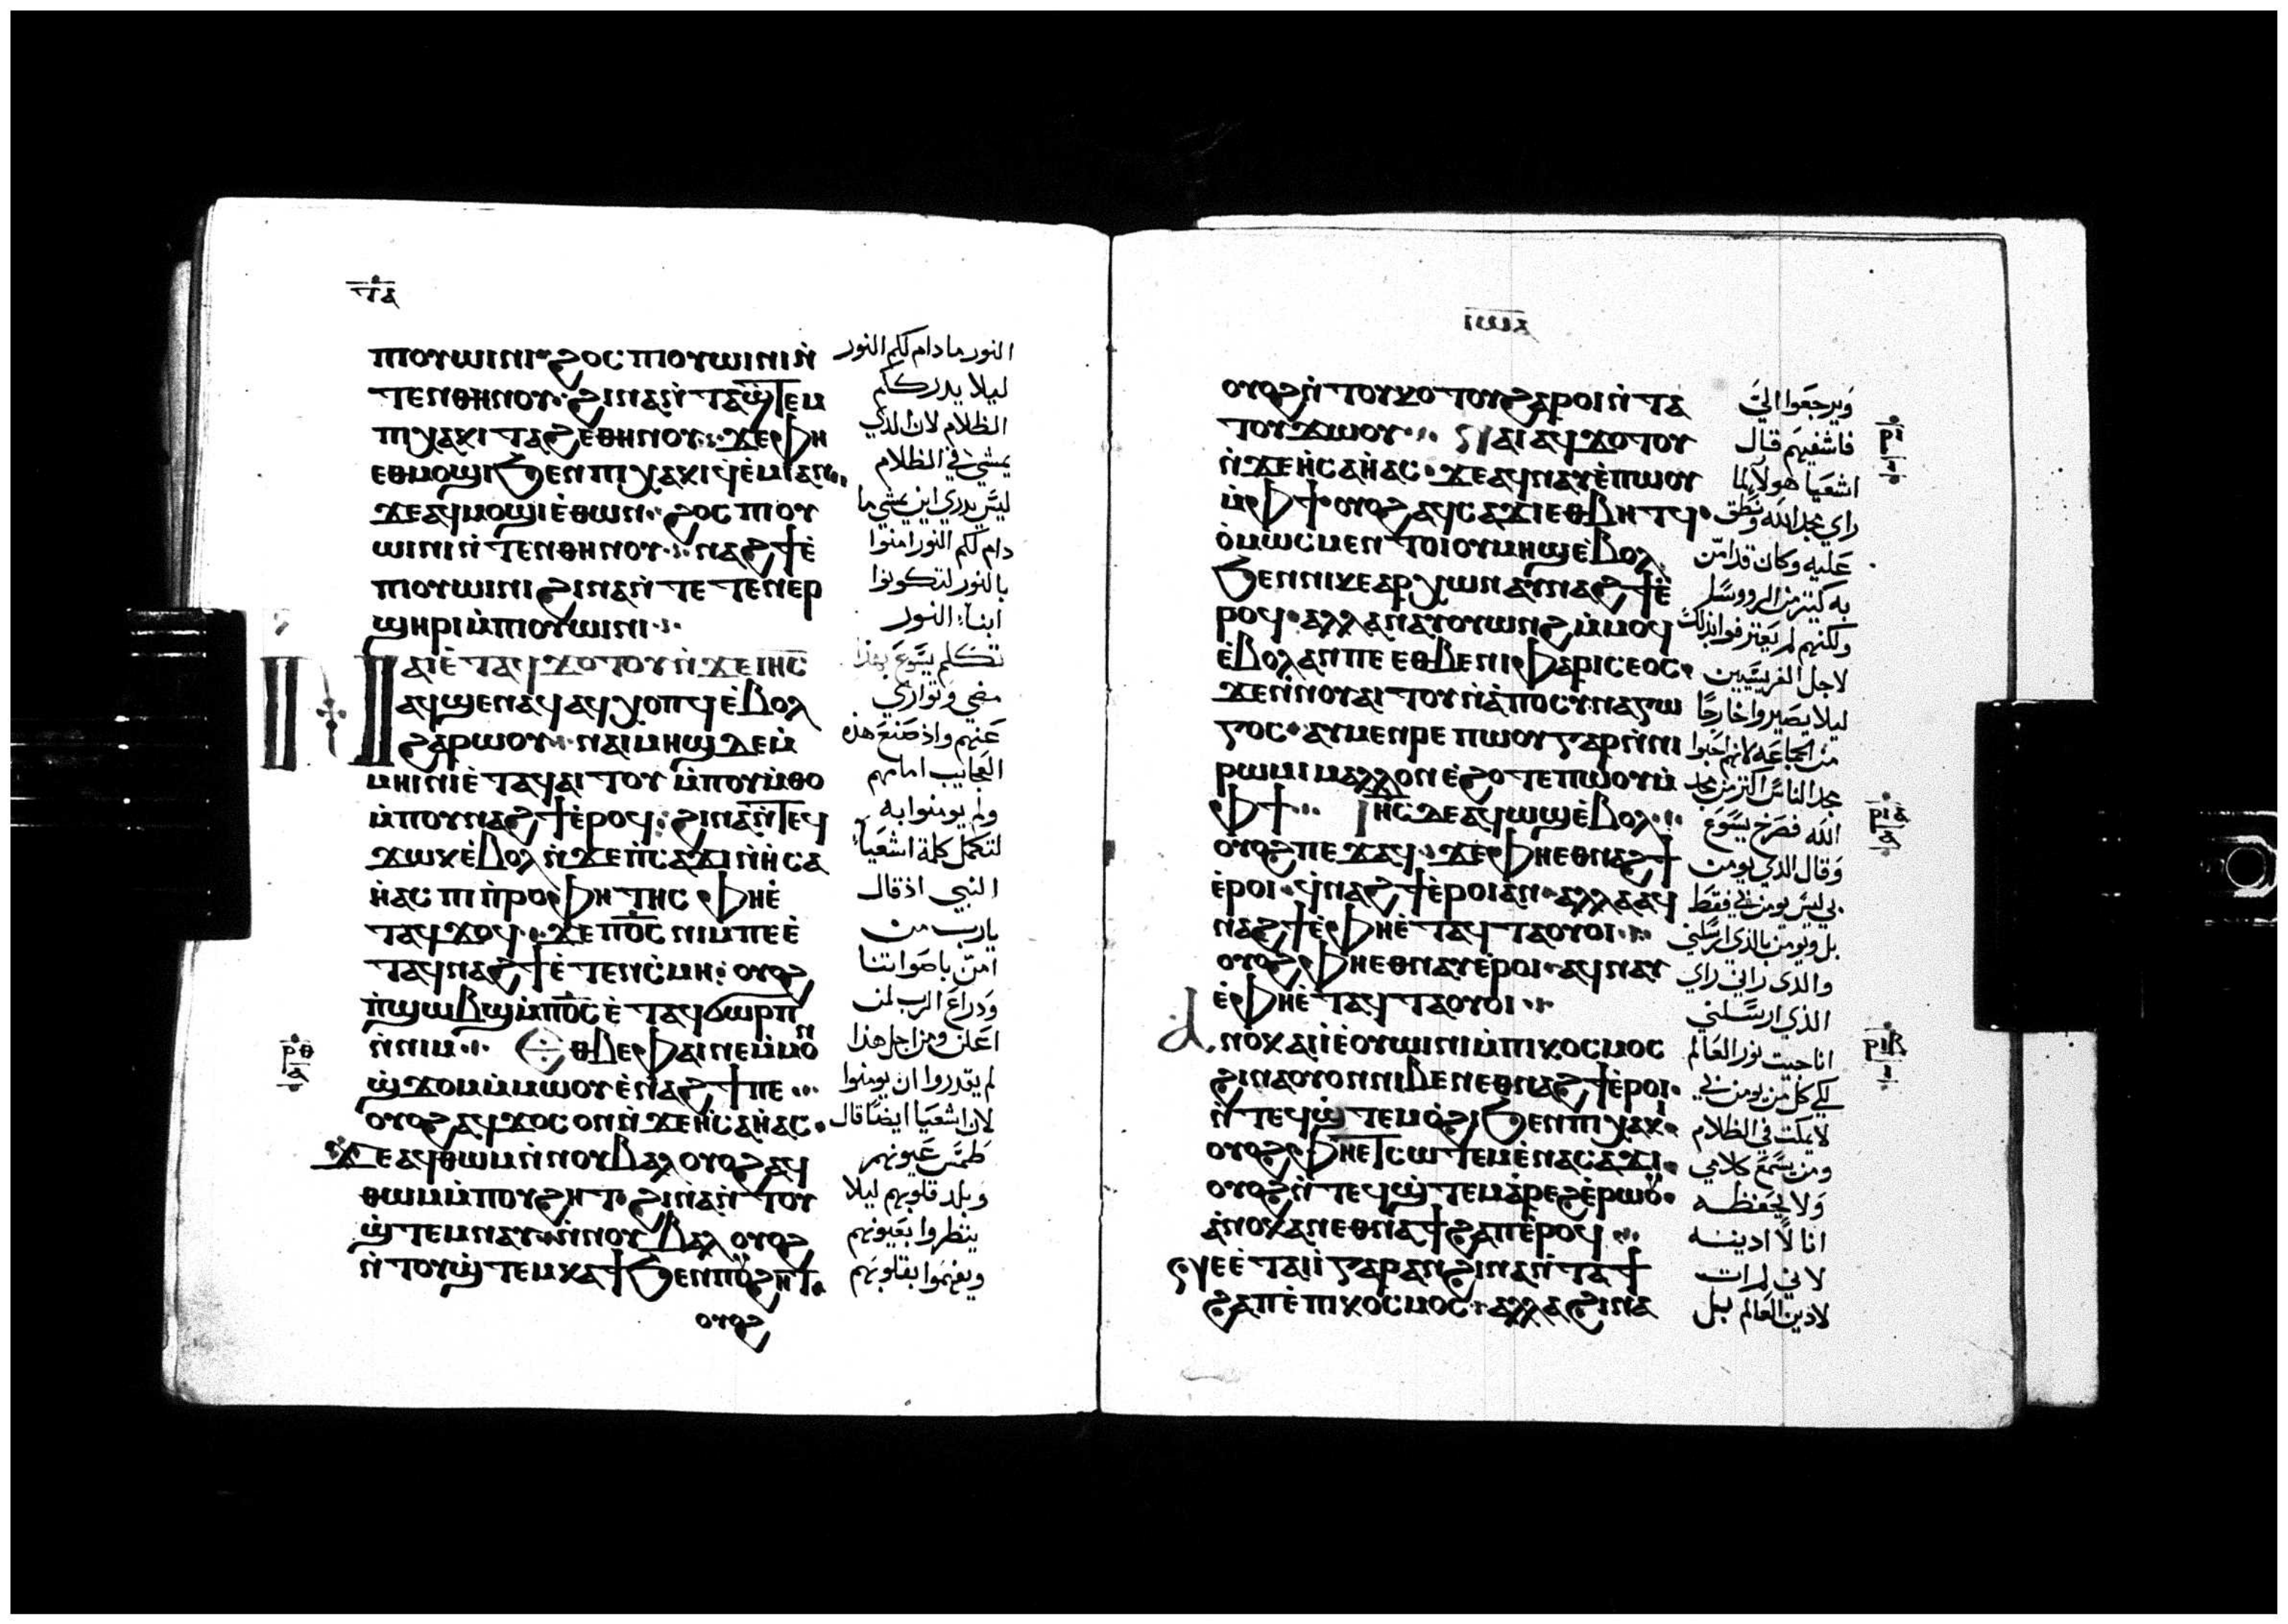 ⲧⲁ
ⲡⲓⲟⲩⲱⲓⲛⲓ ϩⲟⲥ ⲡⲓⲟⲩⲱⲓⲛⲓ ⲛ̀
ⲧⲉⲛⲑⲏⲛⲟⲩ· ϩⲓⲛⲁ ⲛ̀ⲧⲁϣ̀ⲧⲉⲙ
ⲡⲓⲭⲁⲕⲓ ⲧⲁϩⲉⲑⲏⲛⲟⲩ· ϫⲉ ⲫⲏ
ⲉⲑⲙⲟϣⲓ ϧⲉⲛ ⲡⲓⲭⲁⲕⲓ ϥ̀ⲉⲙⲓ ⲁⲛ
ϫⲉ ⲁϥⲙⲟϣⲓ ⲉ̀ⲑⲱⲛ· ϩⲟⲥ ⲡⲓⲟⲩ
ⲱⲓⲛⲓ ⲛ̀ⲧⲉⲛⲑⲏⲛⲟⲩ· ⲛⲁϩϯ ⲉ̀
ⲡⲓⲟⲩⲱⲓⲛⲓ ϩⲓⲛⲁ ⲛ̀ⲧⲉⲧⲉⲛⲉⲣ
ϣⲏⲣⲓ ⲙ̀ⲡⲓⲟⲩⲱⲓⲛⲓ·
ⲡ ⲡⲁⲓ ⲉ̀ⲧⲁϥϫⲟⲧⲟⲩ ⲛ̀ϫⲉ ⲓⲏⲥ
ⲁϥϣⲉⲛⲁϥ ⲁϥⲭⲟⲡϥ ⲉ̀ⲃⲟⲗ
ϩⲁⲣⲱⲟⲩ· ⲛⲁⲓⲙⲏϣ ⲇⲉ ⲙ̀
ⲙⲏⲓⲛⲓ ⲉ̀ⲧⲁϥⲁⲓⲧⲟⲩ ⲙ̀ⲡⲟⲩⲙ̀ⲑⲟ
ⲙ̀ⲡⲟⲩⲛⲁϩϯ ⲉ̀ⲣⲟϥ· ϩⲓⲛⲁ ⲛ̀ⲧⲉϥ
ϫⲱⲕ ⲉ̀ⲃⲟⲗ ⲛ̀ϫⲉ ⲡ̀ⲥⲁϫⲓ ⲛ̀ⲏⲥⲁ
ⲏ̀ⲁⲥ ⲡⲓⲡ̀ⲣⲟⲫⲏⲧⲏⲥ ⲫⲏ ⲉ̀
ⲧⲁϥϫⲟϥ· ϫⲉ ⲡⲟ̅ⲥ̅ ⲛⲓⲙ ⲡⲉ ⲉ̀
ⲧⲁϥⲛⲁϩϯ ⲉ̀ⲧⲉⲛⲥ̀ⲙⲏ· ⲟⲩⲟϩ
ⲡ̀ϣⲱⲃϣ ⲙ̀ⲡⲟ̅ⲥ̅ ⲉ̀ⲧⲁϥϭⲱⲣⲡ
ⲛ̀ⲛⲓⲙ· ⲉⲑⲃⲉ ⲫⲁⲓ ⲛⲉ ⲙ̀ⲙⲟⲛ
ϣ̀ϫⲟⲙ ⲙ̀ⲙⲱⲟⲩ ⲉ̀ⲛⲁϩϯ ⲡⲉ
ⲟⲩⲟϩ ⲁϥϫⲟⲥ ⲟⲛ ⲛ̀ϫⲉ ⲏ̀ⲥⲁⲏ̀ⲁⲥ·
ϫⲉ ⲁϥⲑⲱⲙ ⲛ̀ⲛⲟⲩⲃⲁⲗ ⲟⲩⲟϩ ⲁϥ
ⲑⲱⲙ ⲙ̀ⲡⲟⲩϩⲏⲧ· ϩⲓⲛⲁ ⲛ̀ⲧⲟⲩ
ϣ̀ⲧⲉⲙⲛⲁⲩ ⲛ̀ⲛⲟⲩⲃⲁⲗ ⲟⲩⲟϩ
ⲛ̀ⲧⲟⲩϣ̀ⲧⲉⲙⲕⲁϯ ϧⲉⲛ ⲡⲟⲩϩⲏⲧ·
ⲟⲩⲟϩ
ⲣⲑ
ⲁ
النور ما دام لكم النور
ليلا يدرككم
الظلام لان الذي
يمشي في الظلام
ليس يدري اين يمشي ما
دام لكم النور امنوا
بالنور لتكونوا
ابناء النور
تكلم يسوع بهذا
مضي وتواري
عنهم واذ صنع هذه
العجايب امامهم
ولم يومنوا به
لتكمل كلمة اشعياء
النبي اذ قال
يارب من
امن باصواتنا
ودراع الرب لمن
اعلن ومن اجل هذا
لم يقدروا ان يومنوا
لان اشعيا ايضا قال
طمس عيونهم
وبلد قلوبهم ليلا
ينظروا بعيونهم
ويفهموا بقلوبهم
ⲟⲩⲟϩ ⲛ̀ⲧⲟⲩⲕⲟⲧⲟⲩ ϩⲁⲣⲟⲓ ⲛ̀ⲧⲁ
ⲧⲟⲩϫⲱⲟⲩ· ⲛⲁⲓ ⲁϥϫⲟⲧⲟⲩ
ⲛ̀ϫⲉ ⲏ̀ⲥⲁⲏ̀ⲁⲥ· ϫⲉ ⲁϥⲛⲁⲩ ⲉ̀ⲡⲱⲟⲩ
ⲙ̀ⲫϯ ⲟⲩⲟϩ ⲁϥⲥⲁϫⲓ ⲉⲑⲃⲏⲧϥ·
ⲟ̀ⲙⲱⲥ ⲙⲉⲛⲧⲟⲓ ⲟⲩⲙⲏϣ ⲉ̀ⲃⲟⲗ
ϧⲉⲛ ⲛⲓⲕⲉⲁⲣⲭⲱⲛ ⲁⲩⲛⲁϩϯ ⲉ̀
ⲣⲟϥ· ⲁⲗⲗⲁ ⲛⲁⲩⲟⲩⲱⲛϩ ⲙ̀ⲙⲟϥ
ⲉ̀ⲃⲟⲗ ⲁⲛ ⲡⲉ ⲉⲑⲃⲉ ⲛⲓⲫⲁⲣⲓⲥⲉⲟⲥ·
ϫⲉ ⲛ̀ⲛⲟⲩⲁⲓⲧⲟⲩ ⲛ̀ⲁ̀ⲡⲟⲥⲩⲛⲁⲅⲱ
ⲅⲟⲥ· ⲁⲩⲙⲉⲛⲣⲉ ⲡⲱⲟⲩ ⲅⲁⲣ ⲛ̀ⲛⲓ
ⲣⲱⲙⲓ ⲙⲁⲗⲗⲟⲛ ⲉ̀ϩⲟⲧⲉ ⲡⲱⲟⲩ ⲙ̀
ⲫϯ· ⲓⲏⲥ ⲇⲉ ⲁϥⲱϣ ⲉ̀ⲃⲟⲗ·
ⲟⲩⲟϩ ⲡⲉϫⲁϥ· ϫⲉ ⲫⲏ ⲉⲑⲛⲁϩϯ
ⲉ̀ⲣⲟⲓ· ϥ̀ⲛⲁϩϯ ⲉ̀ⲣⲟⲓ ⲁⲛ· ⲁⲗⲗⲁ ⲁϥ
ⲛⲁϩϯ ⲉ̀ⲫⲏ ⲉ̀ⲧⲁϥⲧⲁⲟⲩⲟⲓ·
ⲟⲩⲟϩ ⲫⲏ ⲉⲑⲛⲁⲩ ⲉ̀ⲣⲟⲓ· ⲁϥⲛⲁⲩ
ⲉ̀ⲫⲏ ⲉ̀ⲧⲁϥⲧⲁⲟⲩⲟⲓ·
ⲁⲛⲟⲕ ⲁⲓⲓ̀ ⲉⲟⲩⲱⲓⲛⲓ ⲙ̀ⲡⲓⲕⲟⲥⲙⲟⲥ
ϩⲓⲛⲁ ⲟⲩⲟⲛ ⲛⲓⲃⲉⲛ ⲉⲑⲛⲁϩϯ ⲉ̀ⲣⲟⲓ·
ⲛ̀ⲧⲉϥϣ̀ⲧⲉⲙⲟ̀ϩⲓ ϧⲉⲛ ⲡⲓⲭⲁⲕⲓ·
ⲟⲩⲟϩ ⲫⲏ ⲉⲧⲥⲱⲧⲉⲙ ⲉ̀ⲛⲁⲥⲁϫⲓ·
ⲟⲩⲟϩ ⲛ̀ⲧⲉϥϣ̀ⲧⲉⲙⲁ̀ⲣⲉϩ ⲉ̀ⲣⲱⲟⲩ·
ⲁ̀ⲛⲟⲕ ⲁⲛ ⲉⲑⲛⲁϯϩⲁⲡ ⲉ̀ⲣⲟϥ
ⲛⲉⲉ̀ⲧⲁⲓⲓ̀ ⲅⲁⲣ ⲁⲛ ϩⲓⲛⲁ ⲛ̀ⲧⲁϯ
ϩⲁⲡ ⲉ̀ⲡⲓⲕⲟⲥⲙⲟⲥ· ⲁⲗⲗⲁ ϩⲓⲛⲁ
ويرجعوا الي
فاشفيهم قال
اشعيا هولاء لما
راي مجد الله ونطق
عليه وكان قد امن
به كتير من الرووسا
ولكنهم لم يعترفوا بذلك
لاجل الفريسيين
ليلا يصيروا خارجا
من الجماعه لانهم احبوا
مجد الناس اكتر من مجد
الله فصرخ يسوع
وقال الذي يومن
بي ليس يومن بي فقط
بل ويومن بالذي ارسلني
والذي راني راي
الذي ارسلني
انا جيت نور العالم
لكي كل من يومن بي
لا يمكت في الظلام
ومن يسمع كلامي
ولا يحفظه
انا لا ادينه
لاني لم ات
لادين العالم بل
ⲣⲓ
ⲣⲓⲁ
ⲁ
ⲣⲓⲃ